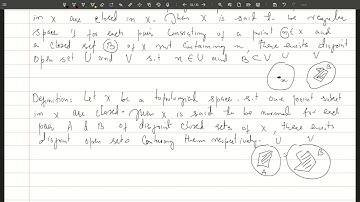 in x are closed in x. Then X is said to be regular
space if for each pair consisting of a point x ∈ X and
a closed set B of X not containing x, there exists disjoint
open set U and V s.t x ∈ U and B ⊂ V U V
B
x
Definition: Let X be a topological space. s.t one point subset
in X are closed. Then X is said to be normal for each
pair A & B of disjoint closed sets of X, there exists
disjoint open sets containing them respectively. U V
A B